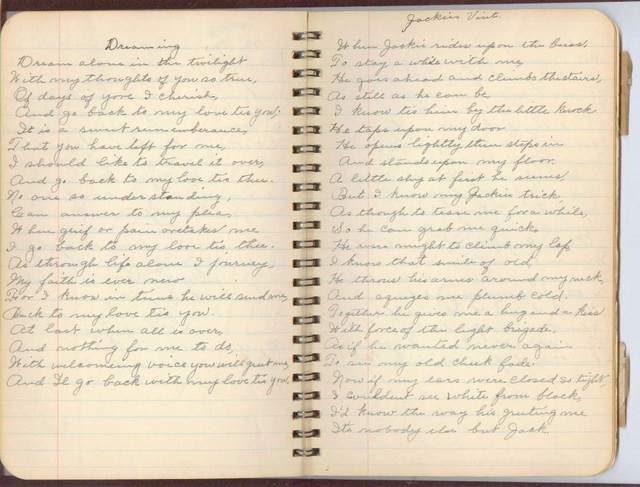 Dreaming
Dream alone in the twilight
With my thoughts of you so true,
Of days of yore I cherish,
And go back to my love tis you.
It is a sweet rememberance,
That you have left for me,
I should like to travel it over,
And go back to my love tis thee.
No one so understanding,
Can answer to my pleas,
When grief or pain overtakes me
I go back to my love tis thee.
As through life alone I journey,
My faith is ever new
For I know in time he will send me,
Back to my love tis you.
At last when all is over,
And nothing for me to do,
With welcomeing voice you will greet me,
And I'll go back with my love tis you.
Jackies Visit.
When Jackie rides upon the buss,
To stay a while with me,
He goes ahead and climbs the stairs,
As still as he can be
I know tis him by the little knock
He taps upon my door
He opens lightly then steps in
And stands upon my floor.
A little shy at first he seems,
But I know my Jackies trick,
As though to tease me for a while,
So he can grab me quick.
He uses might to climb my lap
I know that smile of old,
He throws his arms around my neck,
And squeezes me plumb cold.
Together he gives me a hug and a kiss
With force of the light brigade.
As if he wanted never again
To see my old cheek fade.
Now if my ears were closed so tight,
I couldent see white from black,
I'd know the way his greeting me
Its nobody else but Jack.